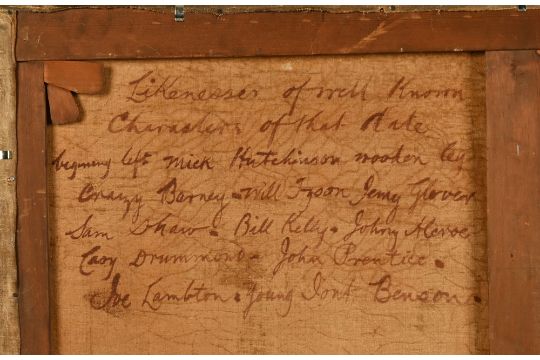 Likenesses of well Known
Characters of that date
begining left Mick Hutchinson wooden leg
Craizy Barney. Will Tyson Jemy Glover
Sam Shaw. Bill Kelly. Johny
Casy Drummond. John Prentice.
Joe Lambton. Young Jont Benson.